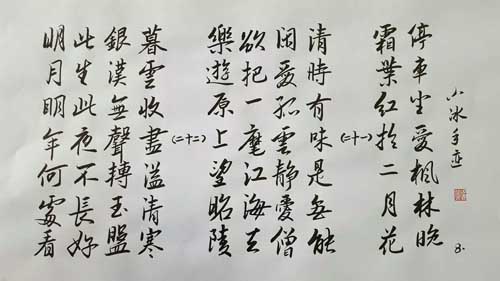 小冰手迹
8.
停車坐愛楓林晚
霜葉紅於二月花
(二十一)
清時有味是無能
闲愛孤雲靜愛僧
欲把一麾江海去
樂遊原上望昭陵
(二十二)
暮雲收盡溢清寒
銀漢無聲轉玉盤
此生此夜不長好
明月明年何處看